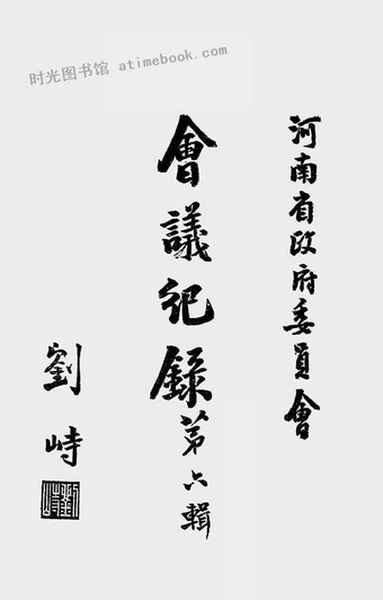 时光图书馆 atimebook.com
河南省政府委員會
會議紀録第六輯
劉峙
劉峙